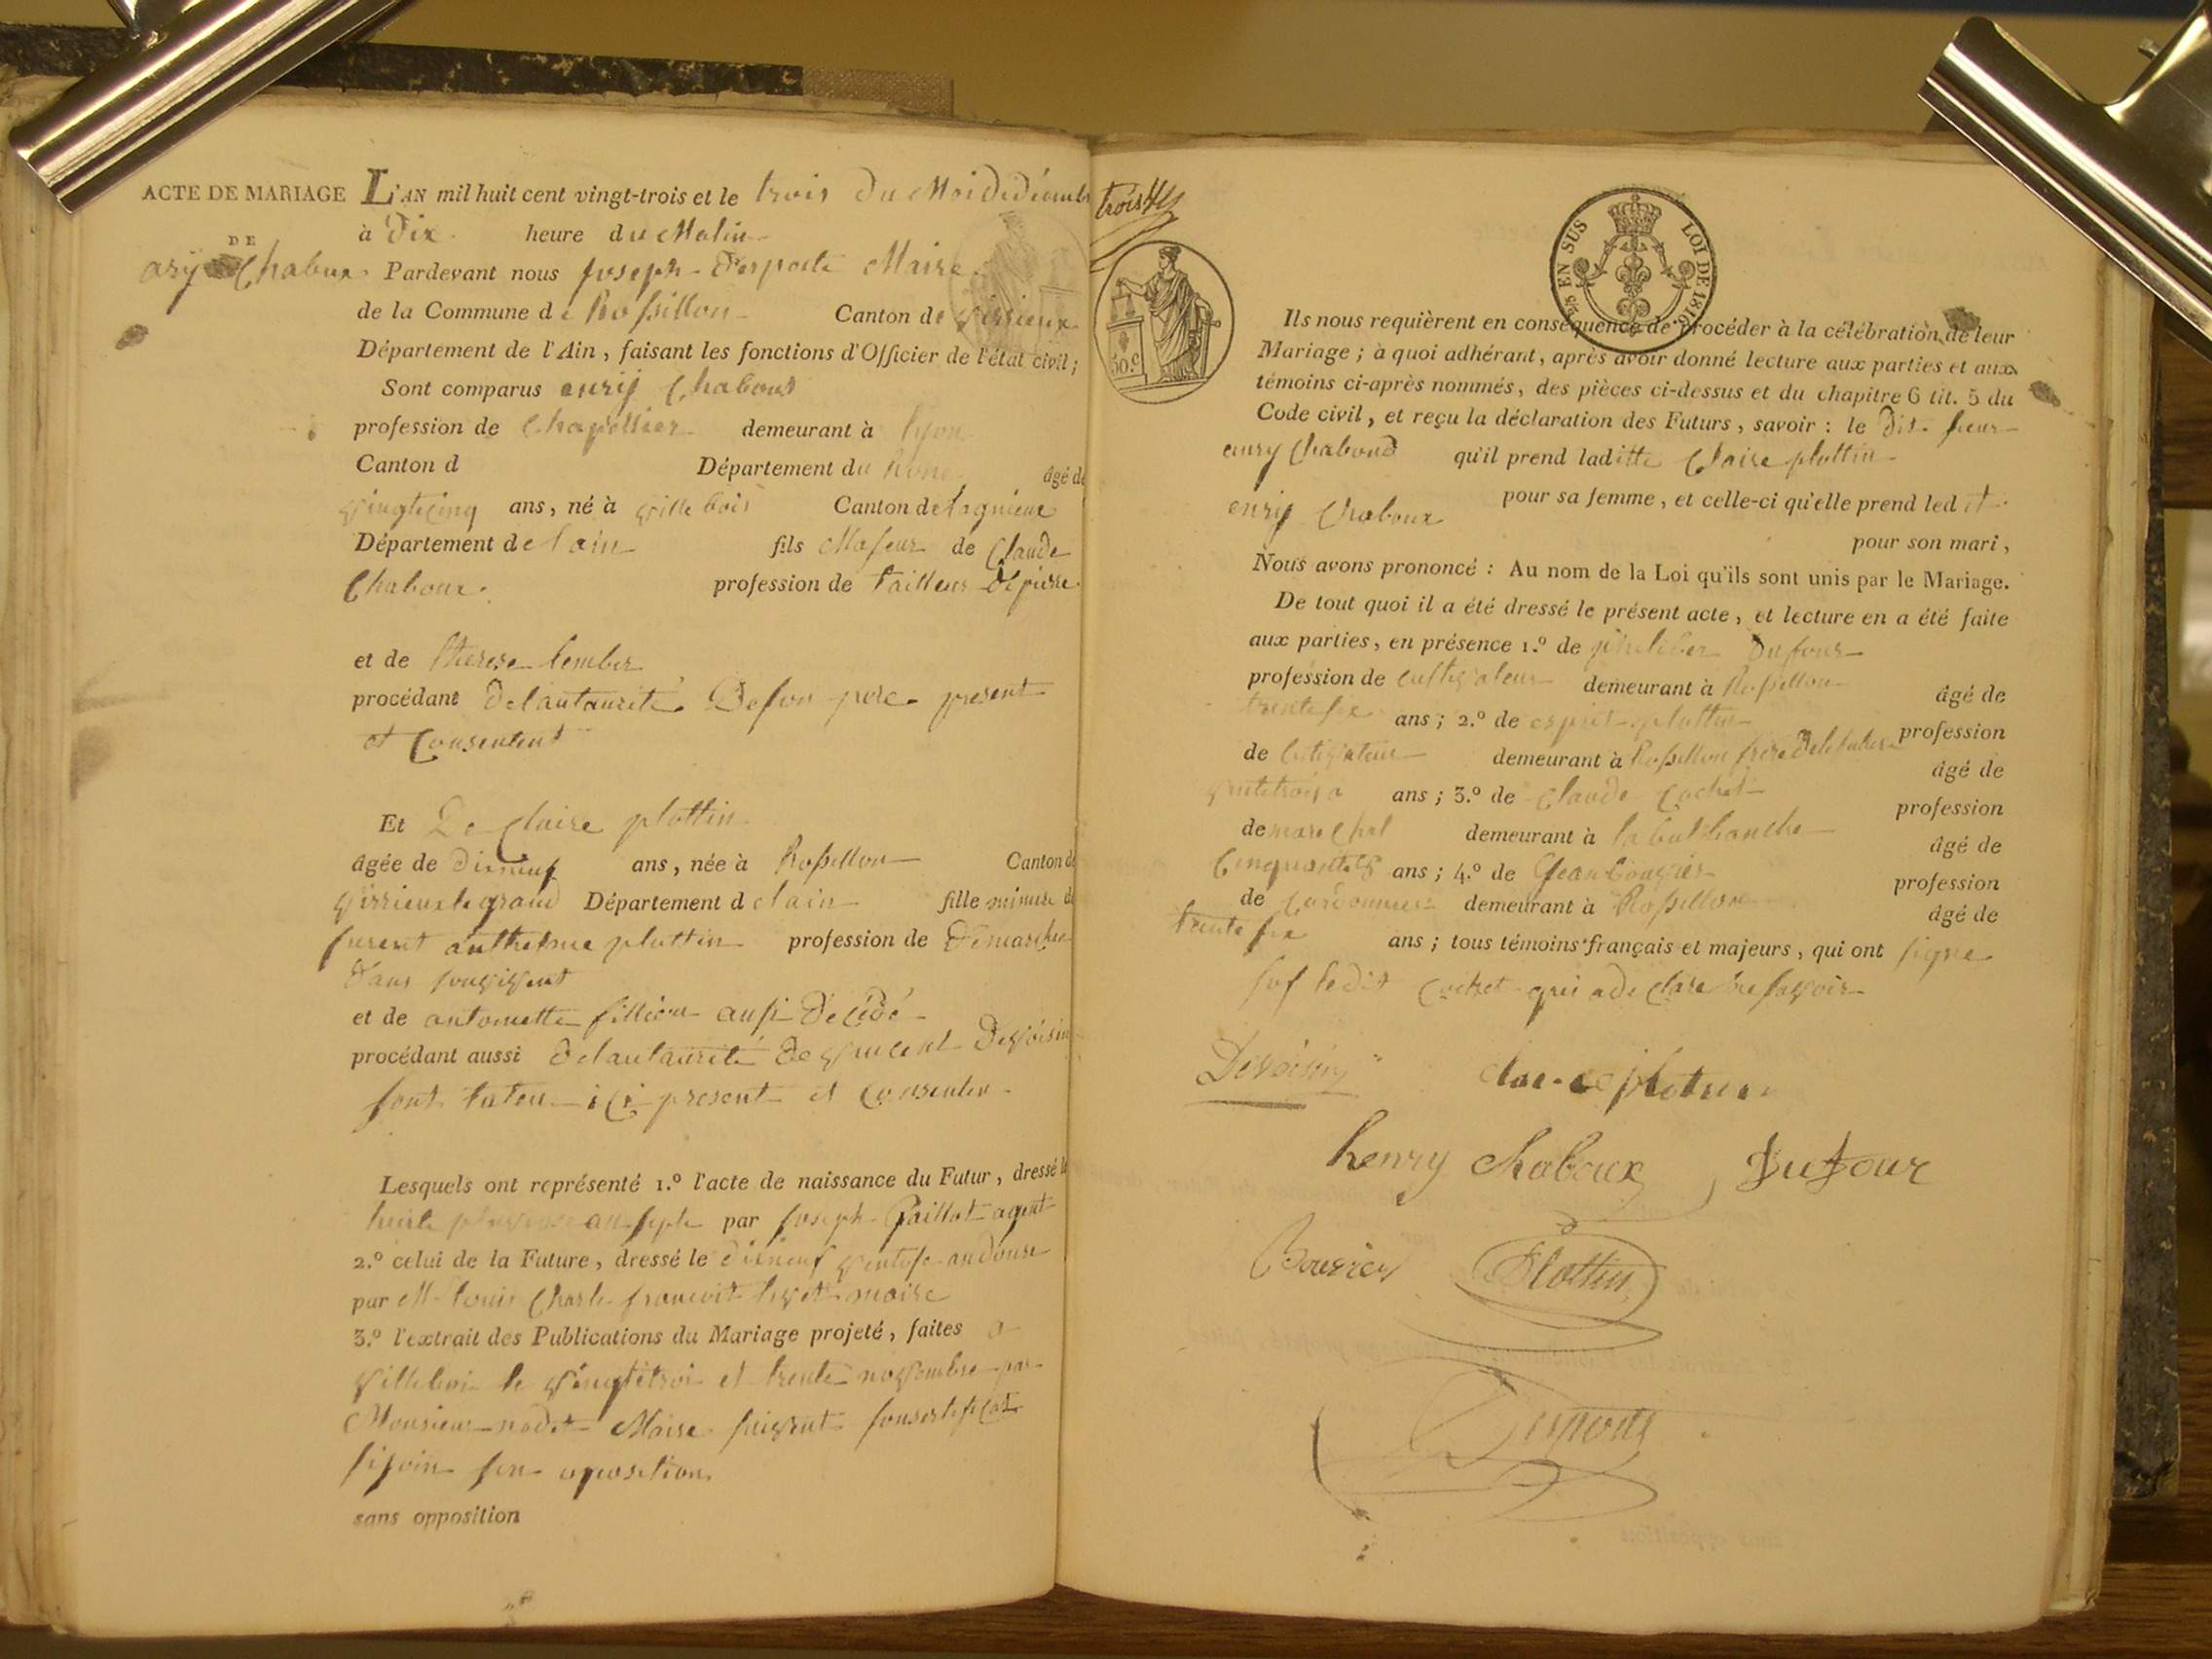 ACTE DE MARIAGE
DE
ary Chabux
L'AN mil huit cent vingt-trois et le trois du Moi de décembr
à Dix heure du Matin
Pardevant nous joseph Desporte Maire
de la Commune de Rossillon Canton de virrieux
Département de l'Ain, faisant les fonctions d'Officier de l'état civil;
Sont comparus enrij Chaboud
profession de Chapellier demeurant à lyon
Canton d Département du Rone âgé de
vingtcinq ans, né à ville bois Canton de lagnieux
Département de l ain fils Majeur de Claude
Chaboux profession de tailleur De pierre
et de therese lember
procédant De lautaurité De son pere present
et Consentent
Et De Claire plottin
âgée de Dixneuf ans, née à Rossillon Canton de
virrieux le grand Département de lain fille minure de
plottin profession de De marchen
Dans
et de antoinette fillion aussi Décédé
procédant aussi De lautaurité De vincent Devoisin
sont tuteu ici present et Consenten
Lesquels ont représenté 1.º l'acte de naissance du Futur, dressé le
huit pluviose an sept par joseph Gaillot agent
2.º celui de la Future, dressé le dixneuf ventose an Douse
par M louis Charle francoit maire
3.º l'extrait des Publications du Mariage projeté, faites a
villeboi le vingtetroi et trente novembre par
Monsieur nodet Maire suivent sonsertificat
sijoin sen oposition
sans opposition
trois
¼ EN SUS LOI DE 1816
50.c
Ils nous requièrent en conséquence de procéder à la célébration de leur
Mariage; à quoi adhérant, après avoir donné lecture aux parties et aux
témoins ci-après nommés, des pièces ci-dessus et du chapitre 6 tit. 5 du
Code civil, et reçu la déclaration des Futurs, savoir: le Dit sieur
enry Chaboud qu'il prend laditte Claire plottin
pour sa femme, et celle-ci qu'elle prend led it
enrij Chaboux pour son mari,
Nous avons prononcé: Au nom de la Loi qu'ils sont unis par le Mariage.
De tout quoi il a été dressé le présent acte, et lecture en a été faite
aux parties, en présence 1.º de philiber Dufour
profession de cultivateur demeurant à Rossillon âgé de
trente six ans; 2.º de esprit plottin profession
de demeurant à Rossillon frere De la future âgé de
ans; 3.º de Claude Cochet profession
de marechal demeurant à la balthanche âgé de
Cinquante ans; 4.º de Jean bouvier profession
de Cordonnier demeurant à Rossillon âgé de
trente six ans; tous témoins français et majeurs, qui ont signe
sof le dit Cochet qui a declare ne savoir
Devoisin
claire plotin
henry chaboux Dufour
Bouvier Plottin
Desporte